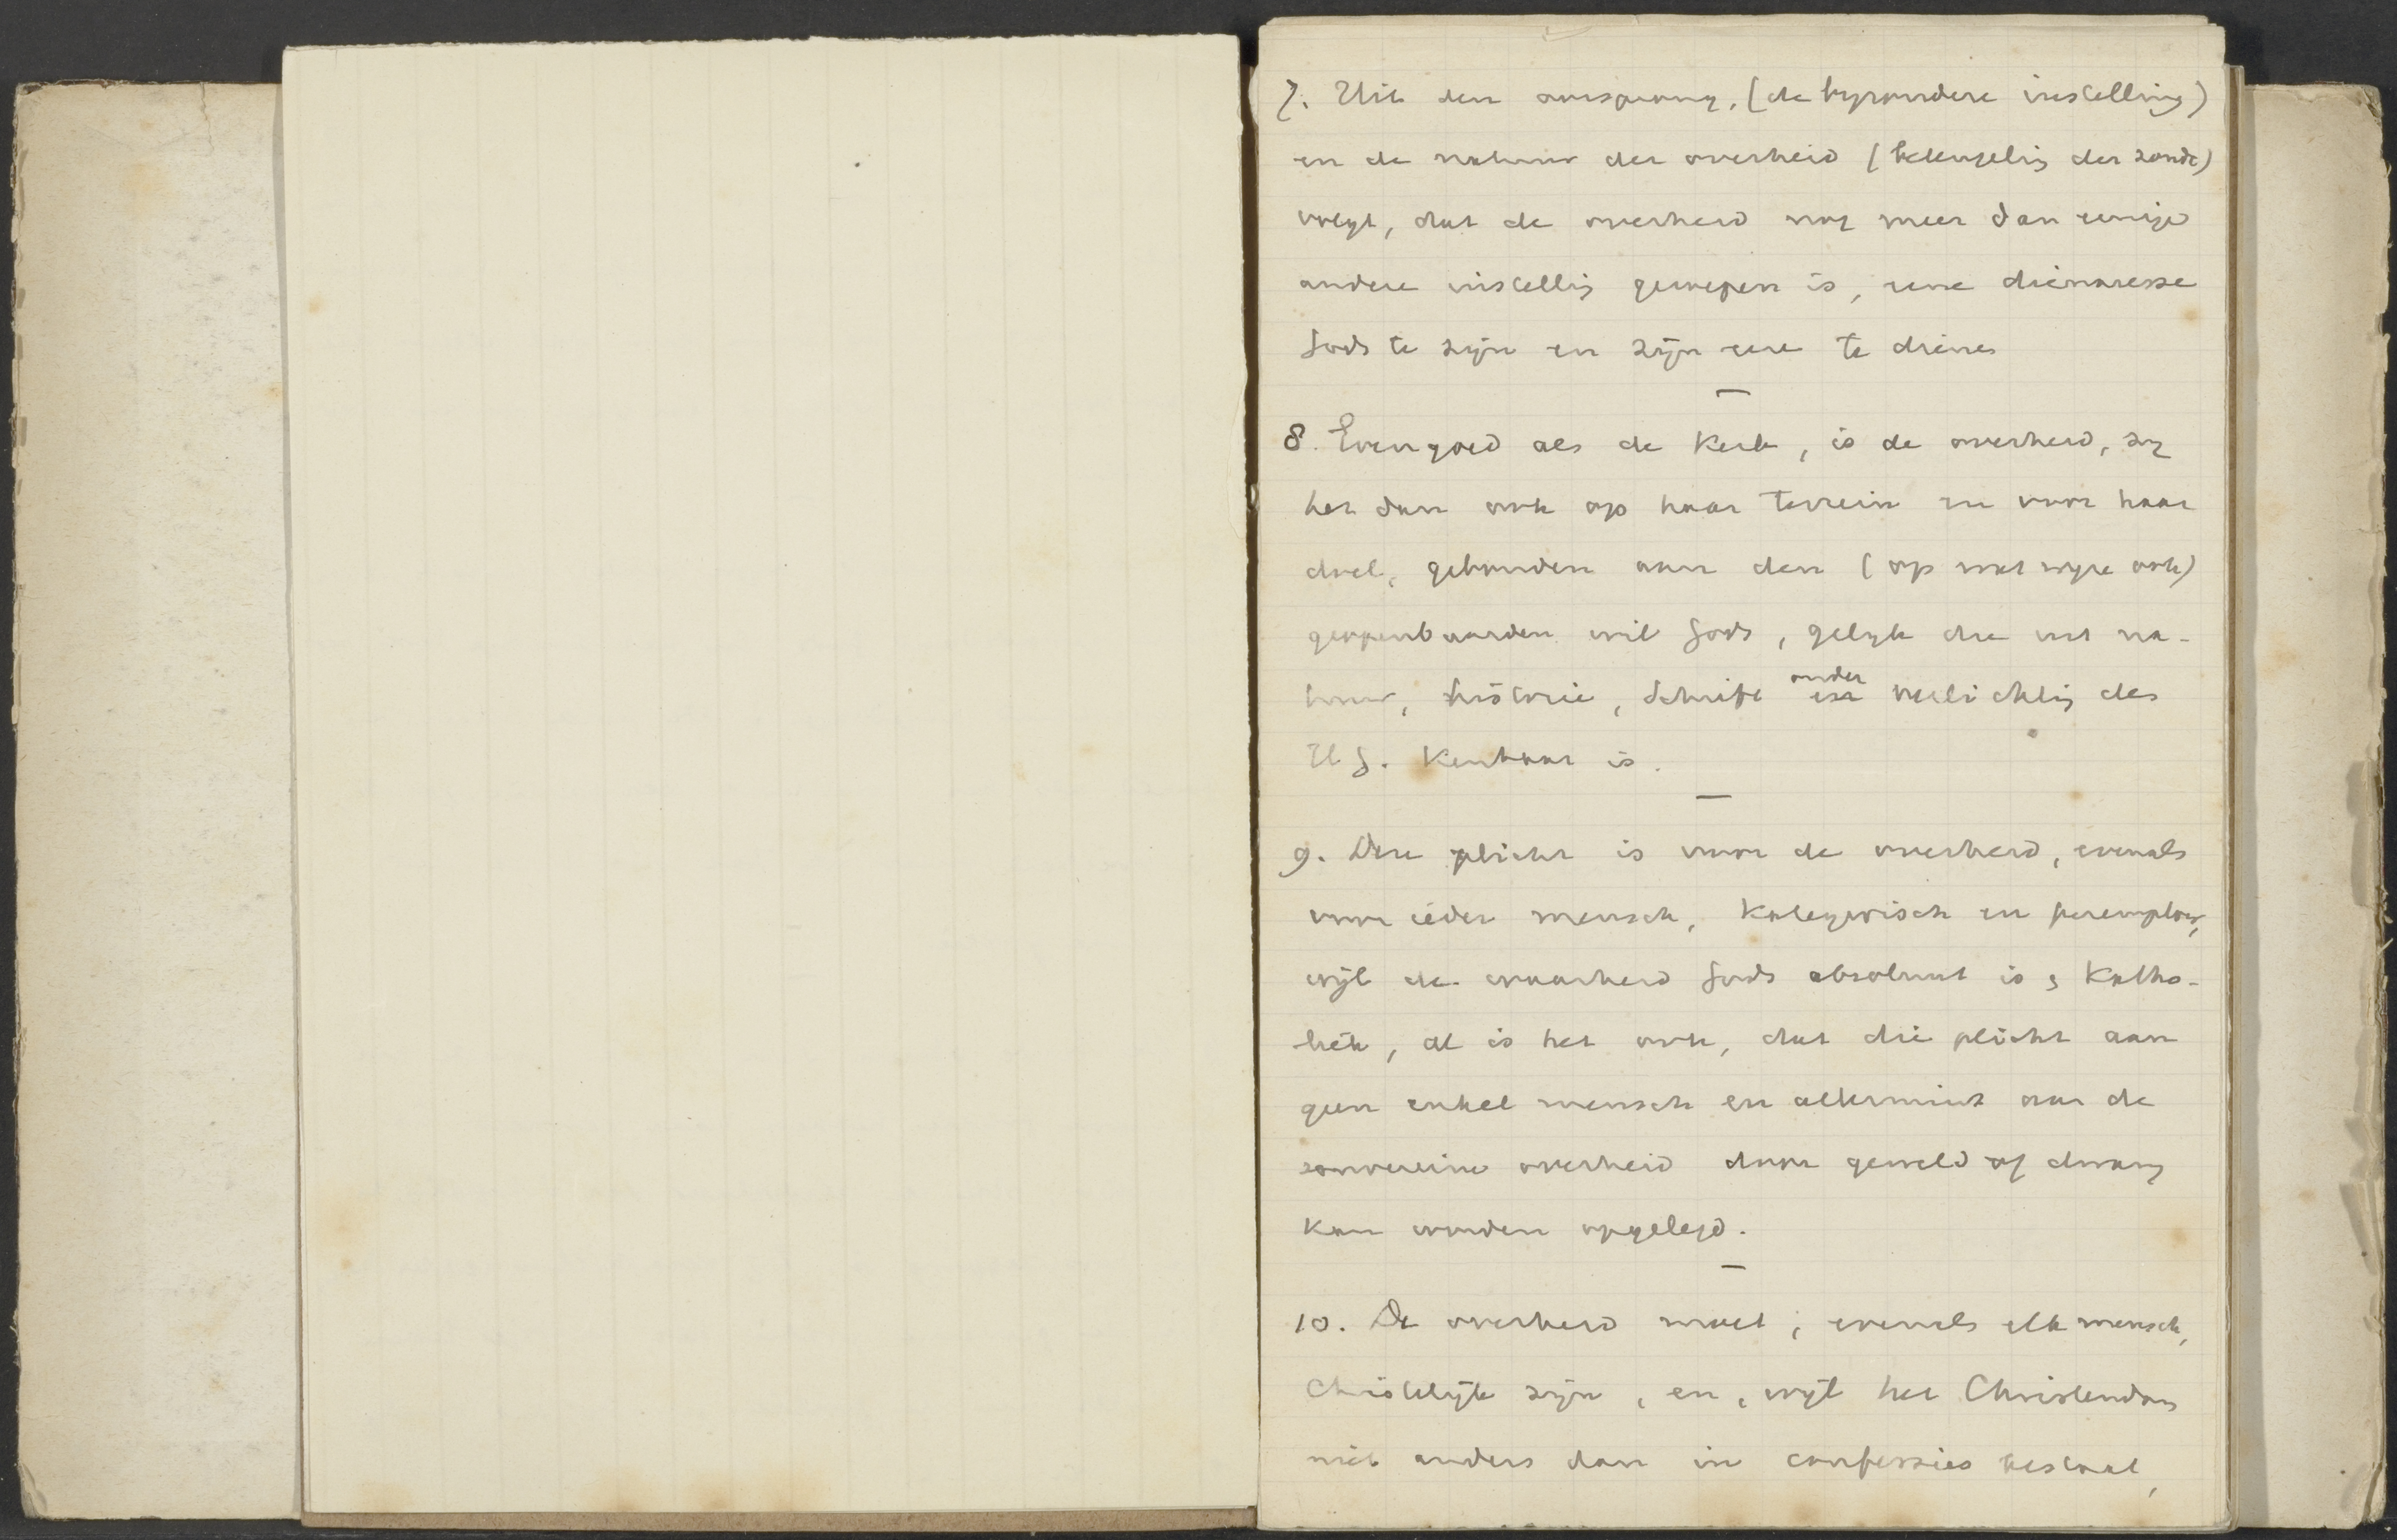 7. Uit den oorsprong, (de byzondere instelling)
en de natuur der overheid (beteugeling der zonde)
volgt, dat de overheid nog meer dan eenige
andere instelling geroepen is, eene dienaresse
Gods te zijn en zijn eere te dienen
—
8. Evengoed als de Kerk, is de overheid, zy
het dan ook op haar terrein en voor haar
doel, gebonden aan den (op wat wyze ook)
geopenbaarden wil Gods, gelyk die uit na-
tuur, historie, Schrift onder verlichting des
H G. kenbaar is.
—
9. Deze plicht is voor de overheid, evenals
voor ieder mensch, kategorisch en peremptoir,
wijl de waarheid Gods absoluut is, katho-
liek, al is het ook, dat die plicht aan
geen enkel mensch en allerminst aan de
souvereine overheid door geweld of dwang
kan worden opgelegd.
—
10. De overheid moet, evenals elk mensch,
Christelijk zijn, en, wijl het Christendom
niet anders dan in confessies bestaat,